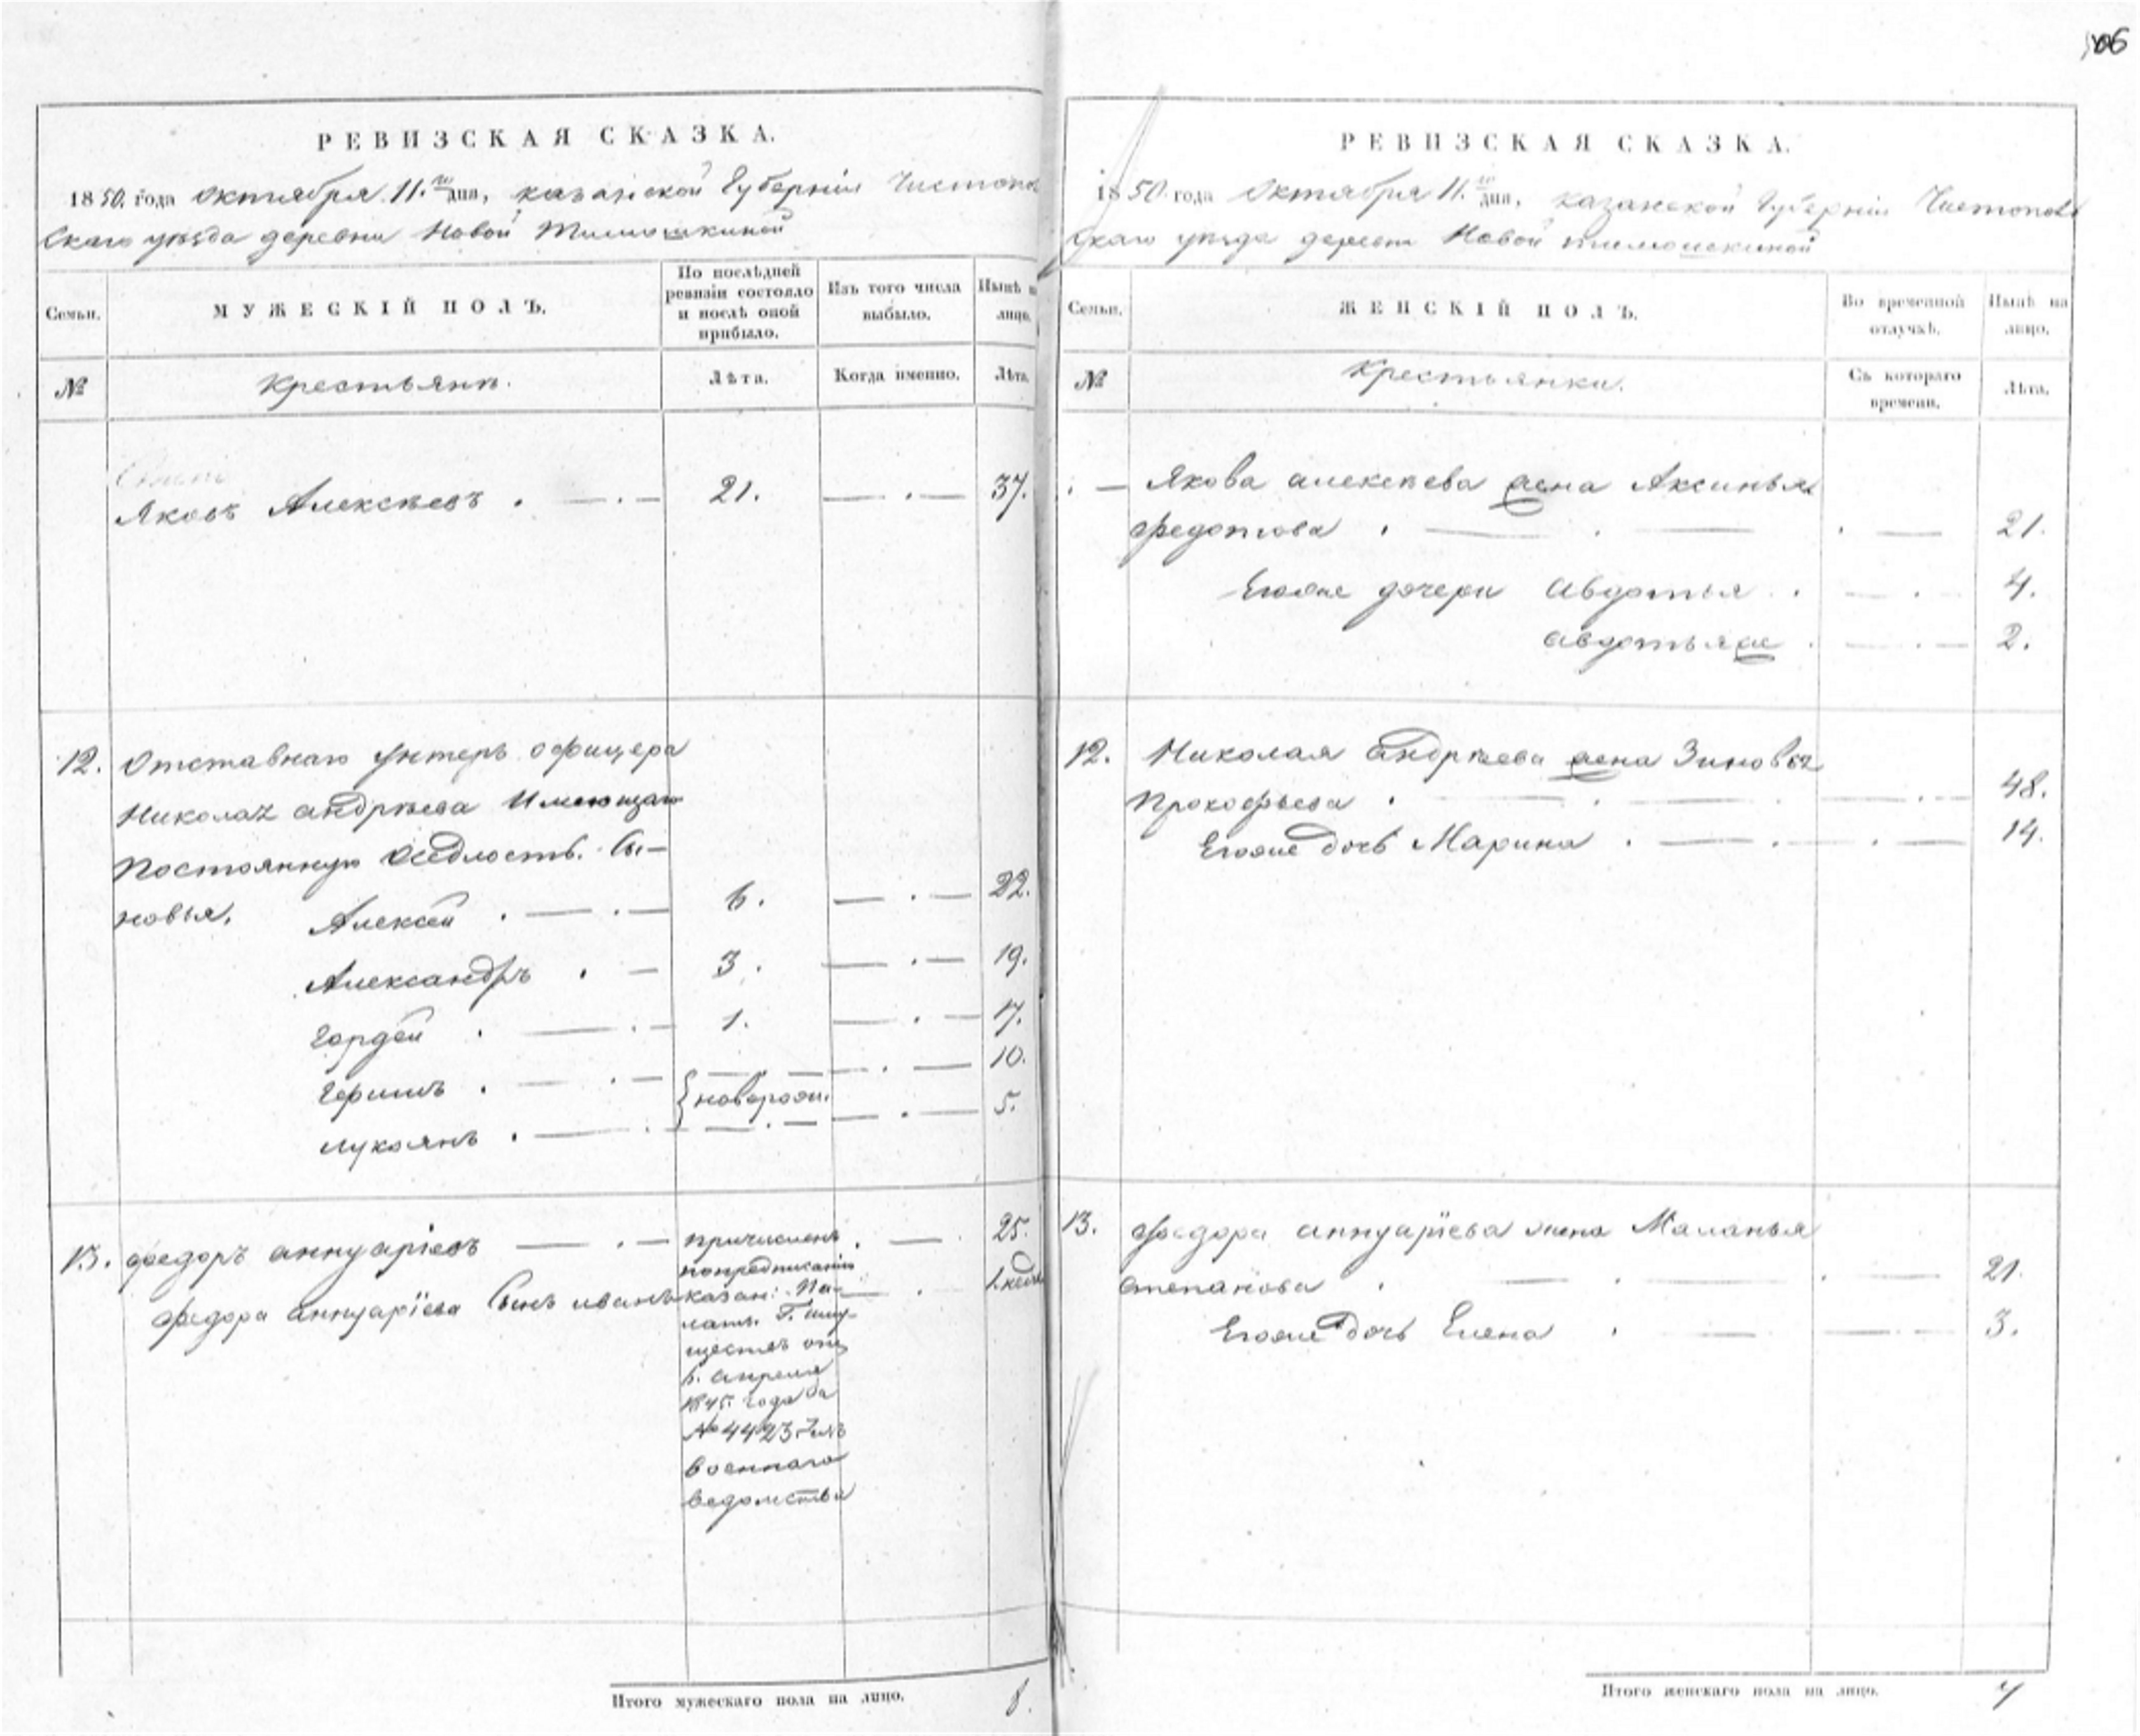 106
РЕВИЗСКАЯ СКАЗКА.
1850. года Октября 11.го дня, казанской Губерніи Чистопо
скаго уѣзда деревни Новой Тимошкиной
Семьи.
МУЖЕСКІЙ ПОЛЪ.
По послѣдней
ревизіи состояло
и послѣ оной
прибыло.
Изъ того числа
выбыло.
Нынѣ на
лицо.
№
Крестьянъ.
Лѣта.
Когда именно.
Лѣта.
Яковъ Алексѣевъ . — . — 21. — . — 37.
12. Отставнаго унтеръ офицера
Николая андрѣева Имеющаго
Постоянную Осѣдлость. Сы-
новья. Алексѣй . — . — 6. — . — 22.
Александръ . — 3. — . — 19.
Гордѣй . — . — 1. — . — 17.
. — . — — . — 10.
{новорож.
лукоянъ . — . — . — — . — 5.
13. федоръ аннуаріевъ — . — причисленъ . — 25.
федора аннуарїева Сынъ иванъ
попредписанію
казан: Па-
латы Г. иму-
ществъ отъ
6. апреля
1845. года за
№ 4423 изъ
военнаго
ведомства
1. нед
Итого мужескаго пола на лицо. 8.
РЕВИЗСКАЯ СКАЗКА.
1850. года Октября 11.го дня, казанской Губерніи Чистопол
скаго уѣзда деревни Новой тимошкиной
Семьи.
ЖЕНСКІЙ ПОЛЪ.
Во временной
отлучкѣ.
Нынѣ на
лицо.
№
Крестьянки.
Съ котораго
времени.
Лѣта.
— Якова алексѣева жена Аксинья
федотова . — . — . — 21.
Егоже дочери Авдотья . — . — 4.
авдотьяже . — . — 2.
12. Николая андрѣева жена Зиновья
Прокофьева . — . — — . — 48.
Егоже дочь Марина . — . — . — 14.
13. федора аннуарїева жена Маланья
степанова . — . — . — 21.
Егоже дочь Елена . — — . — 3.
Итого женскаго пола на лицо. 7